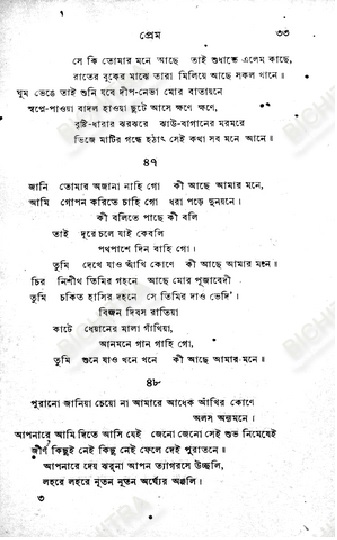 প্রেম ৩৩
সে কি তোমার মনে আছে তাই শুধাতে এলেম কাছে,
রাতের বুকের মাঝে তারা মিলিয়ে আছে সকল খানে॥
ঘুম ভেঙে তাই শুনি যবে দীপ-নেভা মোর বাতায়নে
স্বপ্নে-পাওয়া বাদল হাওয়া ছুটে আসে ক্ষণে ক্ষণে,
বৃষ্টি-ধারার ঝরঝরে ঝাউ-বাগানের মরমরে
ভিজে মাটির গন্ধে হঠাৎ সেই কথা সব মনে আনে॥
৪৭
জানি তোমার অজানা নাহি গো কী আছে আমার মনে,
আমি গোপন করিতে চাহি গো ধরা পড়ে দুনয়নে।
কী বলিতে পাছে কী বলি
তাই দূরে চলে যাই কেবলি
পথপাশে দিন বাহি গো।
তুমি দেখে যাও আঁখি কোণে কী আছে আমার মনে॥
চির নিশীথ তিমির গহনে আছে মোর পূজাবেদী
তুমি চকিত হাসির দহনে সে তিমির দাও ভেদি'।
বিজন দিবস রাতিয়া
কাটে ধেয়ানের মালা গাঁথিয়া,
আনমনে গান গাহি গো,
তুমি শুনে যাও খনে খনে কী আছে আমার মনে॥
৪৮
পুরানো জানিয়া চেয়ো না আমারে আধেক আঁখির কোণে
অলস অন্যমনে।
আপনারে আমি দিতে আসি যেই জেনো জেনো সেই শুভ নিমেষেই
জীর্ণ কিছুই নেই কিছু নেই ফেলে দেই পুরাতনে॥
আপনারে দেয় ঝরনা আপন ত্যাগরসে উচ্ছলি,
লহরে লহরে নূতন নূতন অর্ঘ্যের অঞ্জলি।
৩